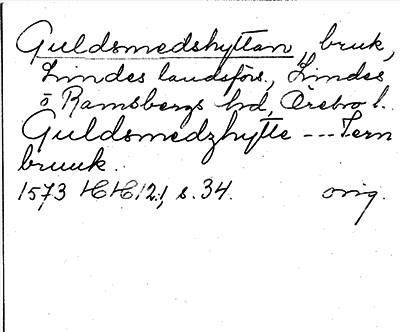 Guldsmedshyttan, bruk,
Lindes landsförs., Lindes
o Ramsbergs hd, Örebro l.
Guldsmedzhytte --- Jern
bruuk.
1573 HH 12:1, s. 34. orig.